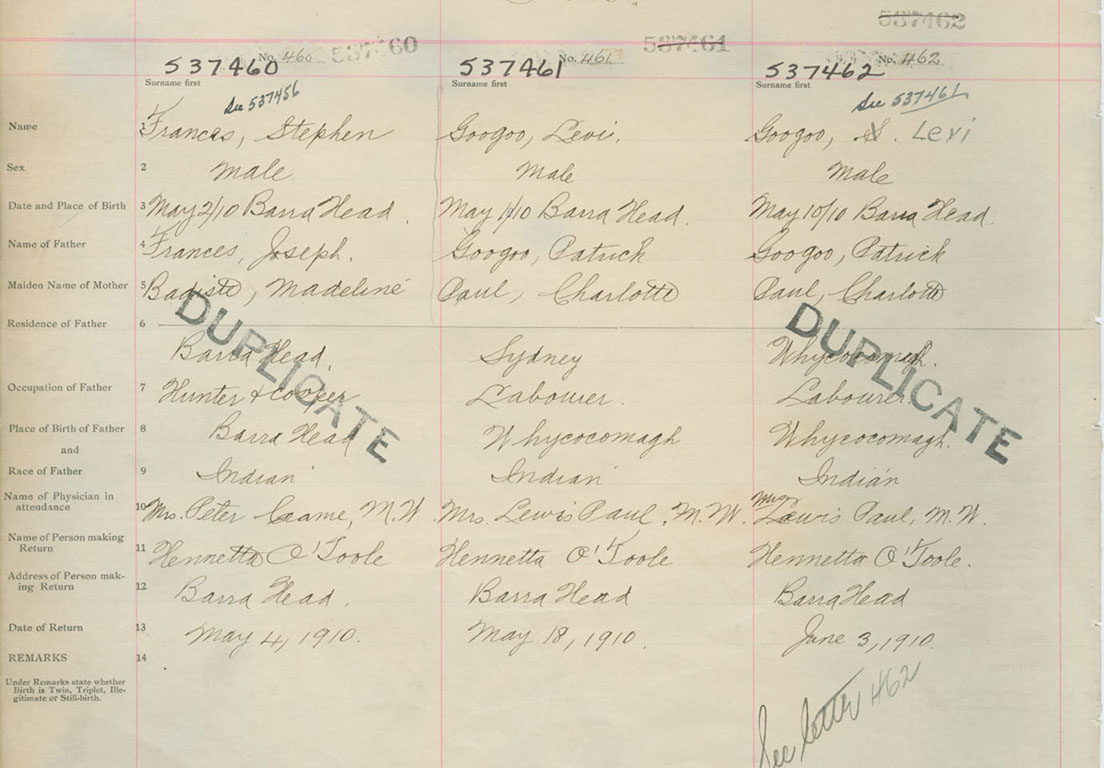 537462
No. 460 537460 No. 461 537461 No. 462
537460 537461 537462
Surname first Surname first Surname first
See 537456 See 537461
Name 1 Frances, Stephen Googoo, Levi. Googoo, S. Levi
Sex 2 Male Male Male
Date and Place of Birth 3 May 2/10 Barra Head May 11/10 Barra Head. May 10/10 Barra Head.
Name of Father 4 Frances, Joseph. Googoo, Patrick Googoo, Patrick
Maiden Name of Mother 5 Badiste, Madeline Paul, Charlotte Paul, Charlotte
Residence of Father 6
Barra Head, Sydney Whycocomagh.
DUPLICATE DUPLICATE
Occupation of Father 7 Hunter & Cooper Labourer. Labourer
Place of Birth of Father 8 Barra Head Whycocomagh Whycocomagh.
and
Race of Father 9 Indian Indian Indian
Name of Physician in
attendance 10 Mrs. Peter M.W Mrs. Lewis Paul, M.W. Mrs Lewis Paul, M.W.
Name of Person making
Return 11 Hennetta O'Toole Hennetta O'Toole Hennetta O'Toole.
Address of Person mak-
ing Return 12 Barra Head. Barra Head Barra Head
Date of Return 13 May 4, 1910. May 18, 1910. June 3, 1910.
REMARKS 14
Under Remarks state whether
Birth is Twin, Triplet, Ille-
gitimate or Still-birth.
See letter 462